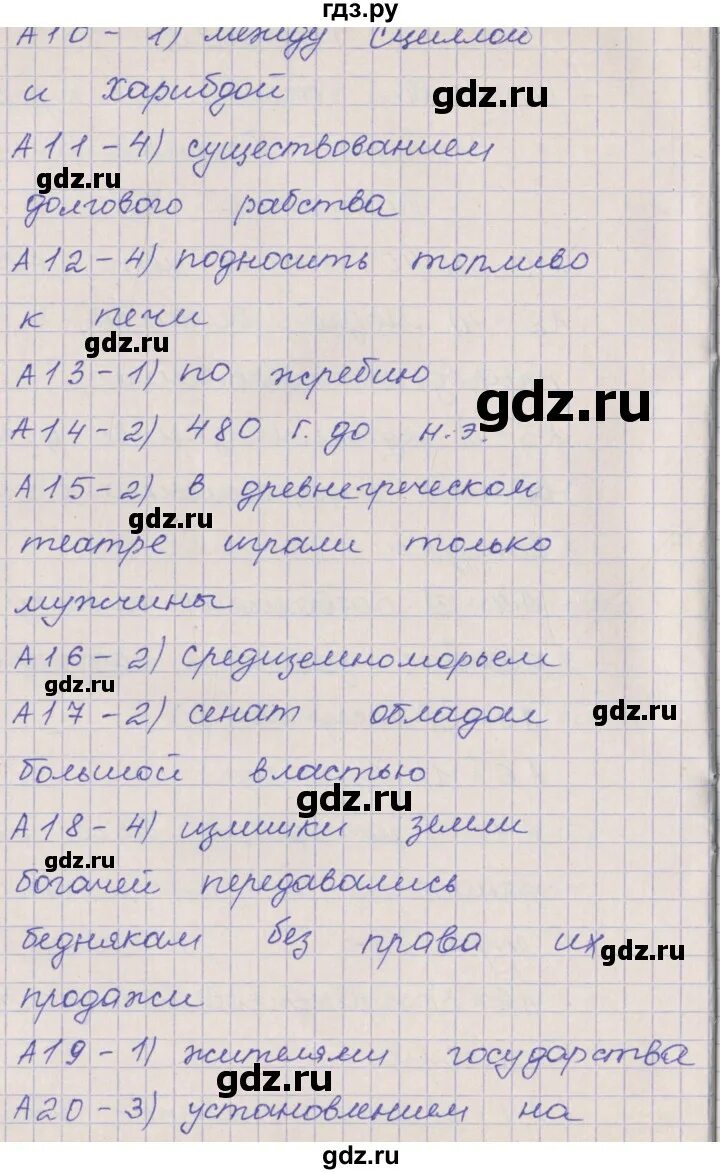 гдз.ру
А10 - 1) между Сциллой
и Харибдой
gdz.ru
А11 - 4) существованием
gdz.ru
долгового рабства
А12 - 4) подносить топливо
к печи
gdz.ru
А13 - 1) по жребию
gdz.ru
А14 - 2) 480 г. до н.э.
А15 - 2) в древнегреческом
gdz.ru
театре играли только
мужчины
А16 - 2) Средиземноморьем
gdz.ru
А17 - 2) сенат обладал
gdz.ru
большой властью
gdz.ru
А18 - 4) излишки земли
gdz.ru
богачей передавались
беднякам без права их
gdz.ru
продажи
А19 - 1) жителями государства
gdz.ru
А20 - 3) установлением на
gdz.ru